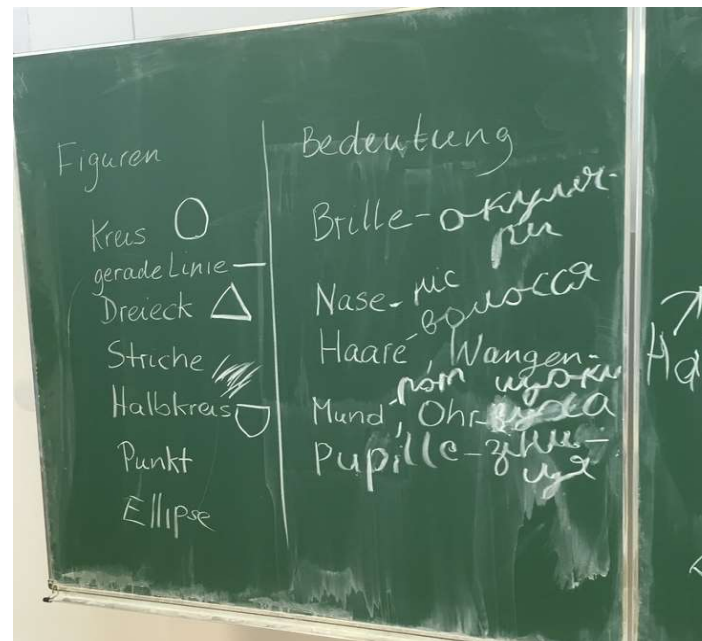 Figuren
Kreis
gerade Linie
Dreieck
Striche
Halbkreis
Punkt
Ellipse
Bedeutung
Brille - окуля-
ри
Nase - ніс
волосся
Haare, Wangen-
рот щоки
Mund, Ohr - вуха
Pupille - зіни-
ця
Ha